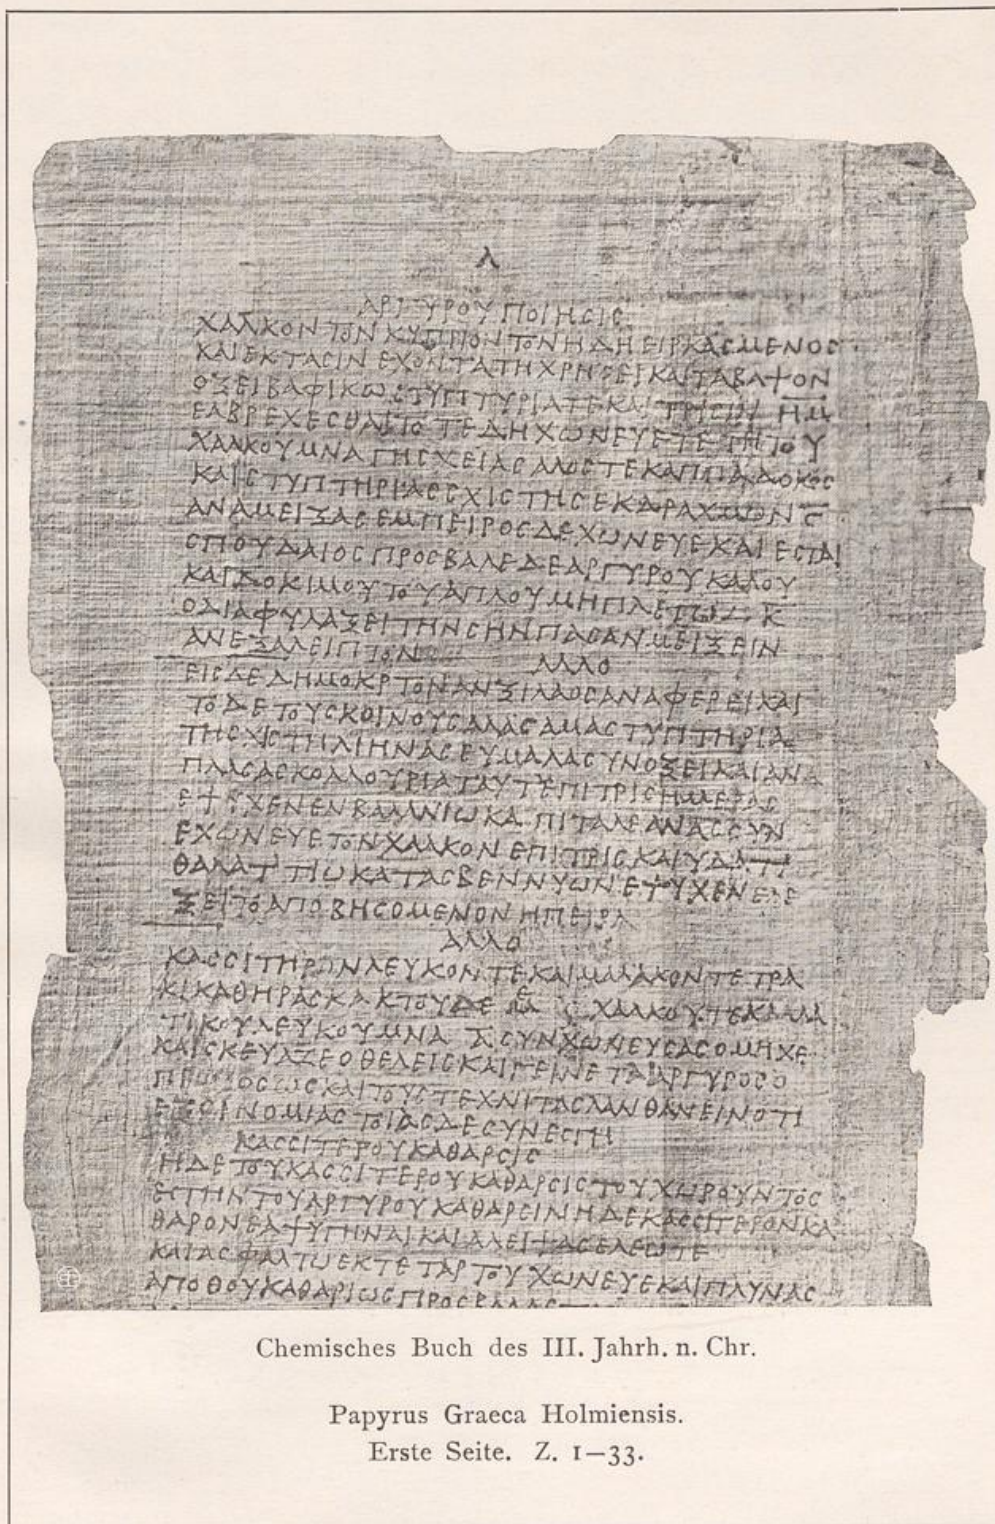 Α
ΑΡΓΥΡΟΥ ΠΟΙΗCΙC
ΧΑΛΚΟΝ ΤΟΝ ΚΥΠΡΙΟΝ ΤΟΝ ΗΔΗ ΕΙΡΓΑCΜΕΝΟC
ΚΑΙ ΕΚΤΑCΙΝ ΕΧΟΝΤΑ ΤΗ ΧΡΗCΕΙ ΚΑΤΑΒΑΨΟΝ
ΟΞΕΙ ΒΑΦΙΚΩ CΤΥΠΤΥΡΙΑ ΤΕ ΚΑΙ ΤΡΙCΙΝ ΗΜ
ΕΑ ΒΡΕΧΕCΘΑΙ ΤΟΤΕ ΔΗ ΧΩΝΕΥΕ ΤΕ ΤΗ ΤΟΥ
ΧΑΛΚΟΥ ΜΝΑ ΓΗC ΧΕΙΑC ΑΛΟC ΤΕ ΚΑΠΠΑΔΟΚΟC
ΚΑΙ CΤΥΠΤΗΡΙΑC CΧΙCΤΗC ΕΚ ΔΡΑΧΜΩΝ
ΑΝΑΜΕΙΞΑC ΕΜΠΕΙΡΟC ΔΕ ΧΩΝΕΥΕ ΚΑΙ ΕCΤΑΙ
CΠΟΥΔΑΙΟC ΠΡΟCΒΑΛΕ ΔΕ ΑΡΓΥΡΟΥ ΚΑΛΟΥ
ΚΑΙ ΔΟΚΙΜΟΥ ΤΟΥ ΑΠΛΟΥ ΜΗ ΠΛΕ
Ο ΔΙΑΦΥΛΑΞΕΙ ΤΗΝ CΗΝ ΠΑCΑΝ ΜΕΙΞΕΙΝ
ΑΝΕΞΑΛΕΙΠΤΟΝ
ΑΛΛΟ
ΕΙC ΔΕ ΔΗΜΟΚΡΤΟΝ ΑΝΞΙΛΑΟC ΑΝΑΦΕΡΕΙ ΚΑΙ
ΤΟΔΕ ΤΟΥC ΚΟΙΝΟΥC ΑΛΑC ΑΜΑ CΤΥΠΤΗΡΙΑ
ΤΗ CΧΙCΤΗ ΛΙΗΝΑC ΕΥ ΜΑΛΑ CΥΝ ΟΞΕΙ ΚΑΙ ΑΝΑ
ΠΛΑCΑC ΚΟΛΛΟΥΡΙΑ ΤΑΥΤ ΕΠΙ ΤΡΙC ΗΜΕΡΑC
ΕΨΥΧΕΝ ΕΝ ΒΑΛΑΝΙΩ ΚΑΠΙΤΑ ΛΕΑΝΑC CΥΝ
ΕΧΩΝΕΥΕ ΤΟΝ ΧΑΛΚΟΝ ΕΠΙ ΤΡΙC ΚΑΙ ΥΔΑΤΙ
ΘΑΛΑΤΤΙΩ ΚΑΤΑCΒΕΝΝΥΩΝ ΕΨΥΧΕΝ ΕΛΕ
ΞΕΙ ΤΟ ΑΠΟΒΗCΟΜΕΝΟΝ Η ΠΕΙΡΑ
ΑΛΛΟ
ΚΑCCΙΤΗΡΟΝ ΛΕΥΚΟΝ ΤΕ ΚΑΙ ΜΑΛΑΚΟΝ ΤΕΤΡΑ
ΚΙ ΚΑΘΗΡΑC ΚΑΚ ΤΟΥΔΕ ΧΑΛΚΟΥ ΤΕ ΚΑΛΑ
ΤΙΚΟΥ ΛΕΥΚΟΥ ΜΝΑ Α CΥΝΧΩΝΕΥCΑC ΟΜΗΧΕ
ΚΑΙ CΚΕΥΑΖΕ Ο ΘΕΛΕΙC ΚΑΙ ΓΕΙΝΕΤΑΙ ΑΡΓΥΡΟC Ο
ΠΡΩΤΟC ΩC ΚΑΙ ΤΟΥC ΤΕΧΝΙΤΑC ΛΑΝΘΑΝΕΙΝ ΟΤΙ
ΕΞ ΟΙΝΟΜΙΑC ΤΟΙΑCΔΕ CΥΝΕCΤΗ
ΚΑCCΙΤΕΡΟΥ ΚΑΘΑΡCΙC
Η ΔΕ ΤΟΥ ΚΑCCΙΤΕΡΟΥ ΚΑΘΑΡCΙC ΤΟΥ ΧΩΡΟΥΝΤΟC
ΕΙC ΤΗΝ ΤΟΥ ΑΡΓΥΡΟΥ ΚΑΘΑΡCΙΝ ΗΔΕ ΚΑCCΙΤΕΡΟΝ ΚΑ
ΘΑΡΟΝ ΕΑ ΨΥΓΗΝΑΙ ΚΑΙ ΑΛΕΙΨΑC ΕΛΕΩ ΤΕ
ΚΑΙ ΑCΦΑΛΤΩ ΕΚ ΤΕΤΑΡΤΟΥ ΧΩΝΕΥΕ ΚΑΙ ΠΛΥΝΑC
ΑΠΟΘΟΥ ΚΑΘΑΡΙΩC ΠΡΟCΒΑΛΑC
Chemisches Buch des III. Jahrh. n. Chr.
Papyrus Graeca Holmiensis.
Erste Seite. Z. 1—33.